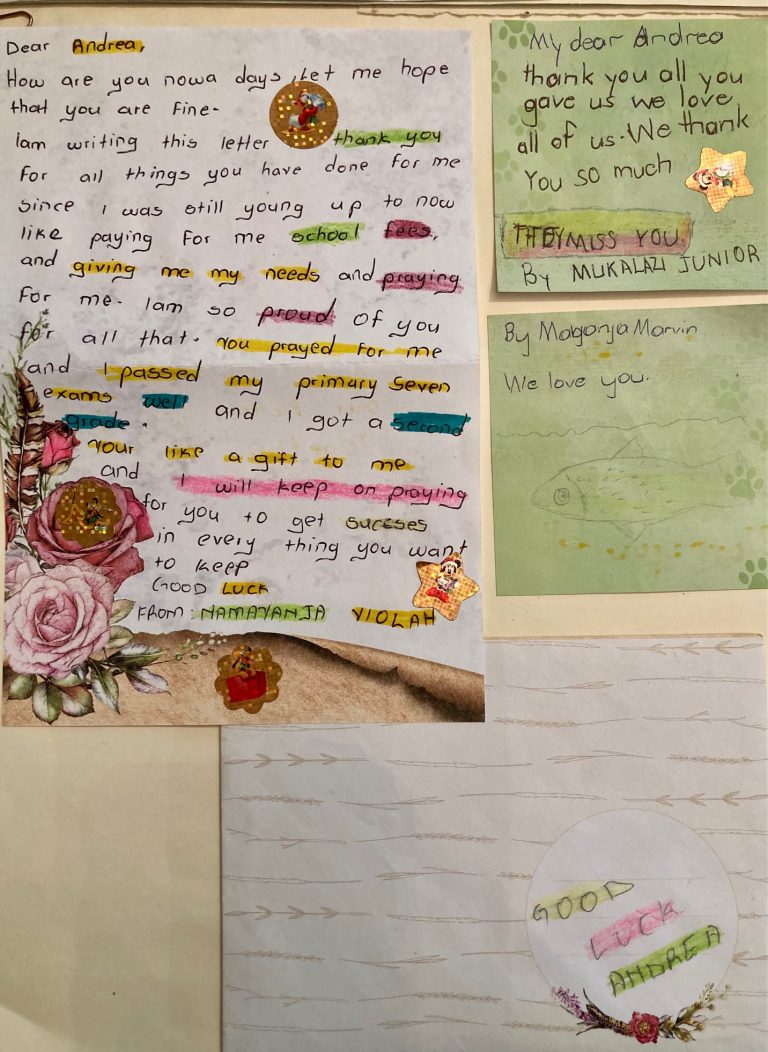 Dear Andrea,
How are you nowa days, Let me hope
that you are fine-
Iam writing this letter thank you
For all things you have done for me
since I was still young up to now
like paying For me school fees,
and giving me my needs and praying
For me- Iam so proud of you
for all that. You prayed For me
and I passed my primary seven
exams well and I got a second
grade.
Your like a gift to me
and I will keep on praying
for you to get sucsses
in every thing you want
to keep
GOOD LUCK
FROM: NAMAYANJA VIOLAH
My dear Andrea
thank you all you
gave us we love
all of us. We thank
You so much
THEY MISS YOU
By MUKALAZI JUNIOR
By Maganja Marvin
We love you.
GOOD
LUCK
ANDREA